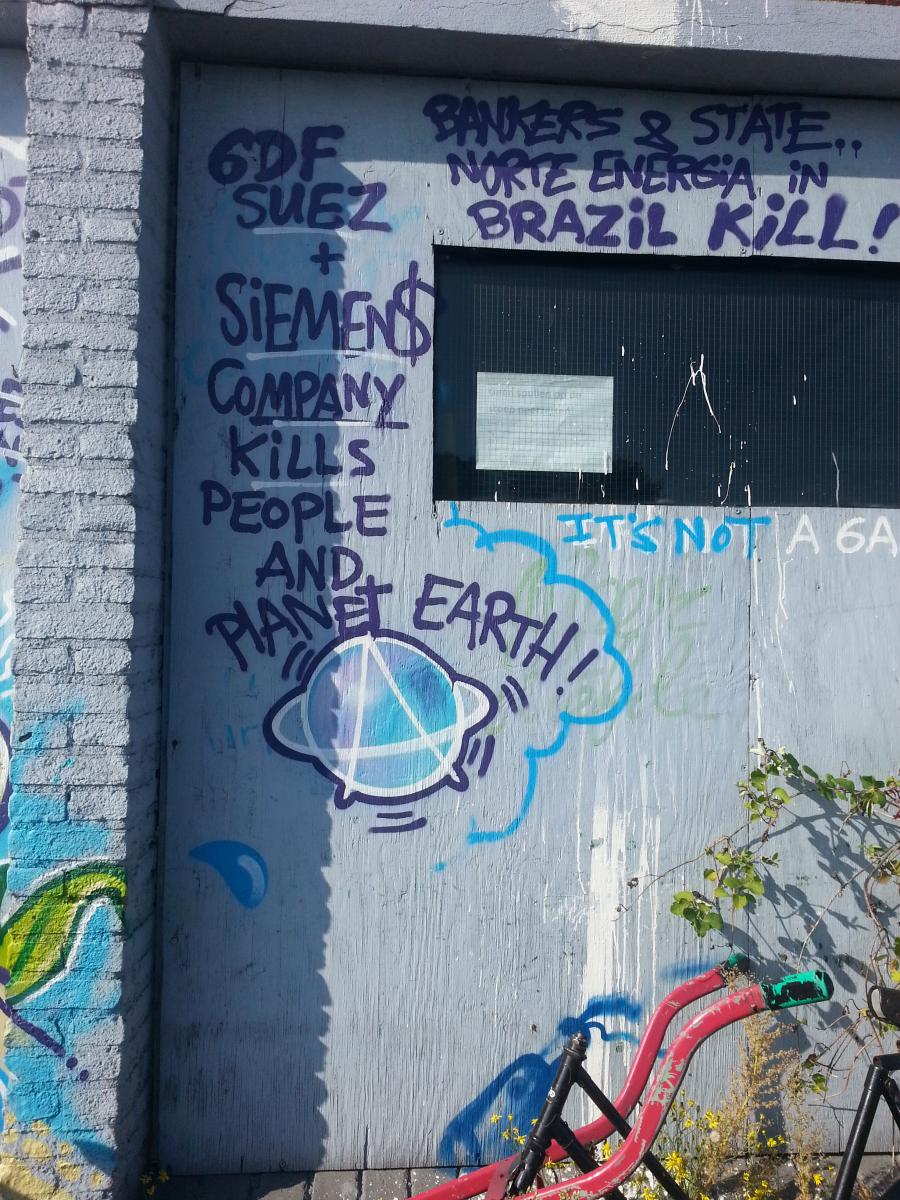 GDF
SUEZ
+
SiEMEN$
COMPANY
KiLLS
PEOPLE
AND
PLANET EARTH!
BANKERS & STATE..
NORTE ENERGiA iN
BRAZiL KiLL!
IT'S NOT A GA